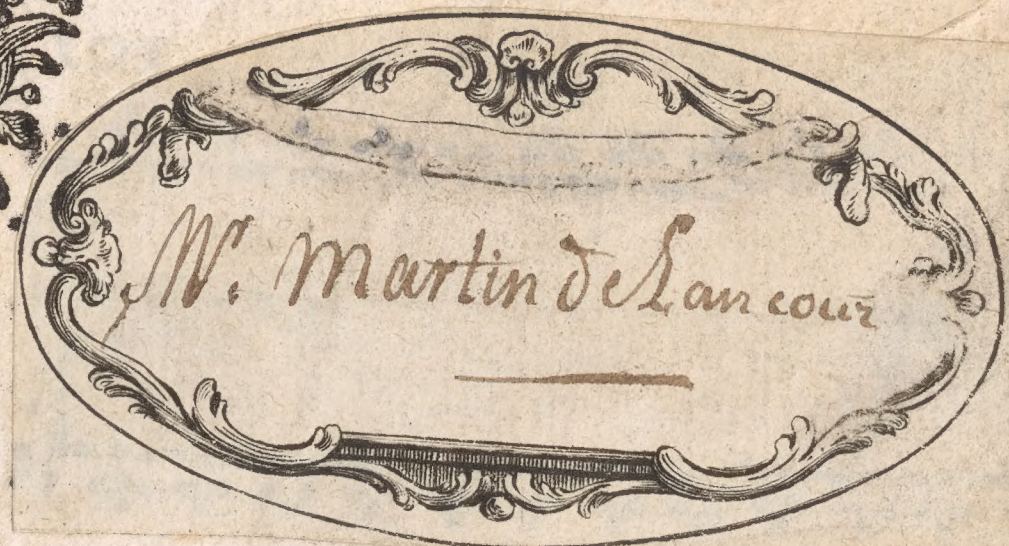 Mr. Martin de Lancour